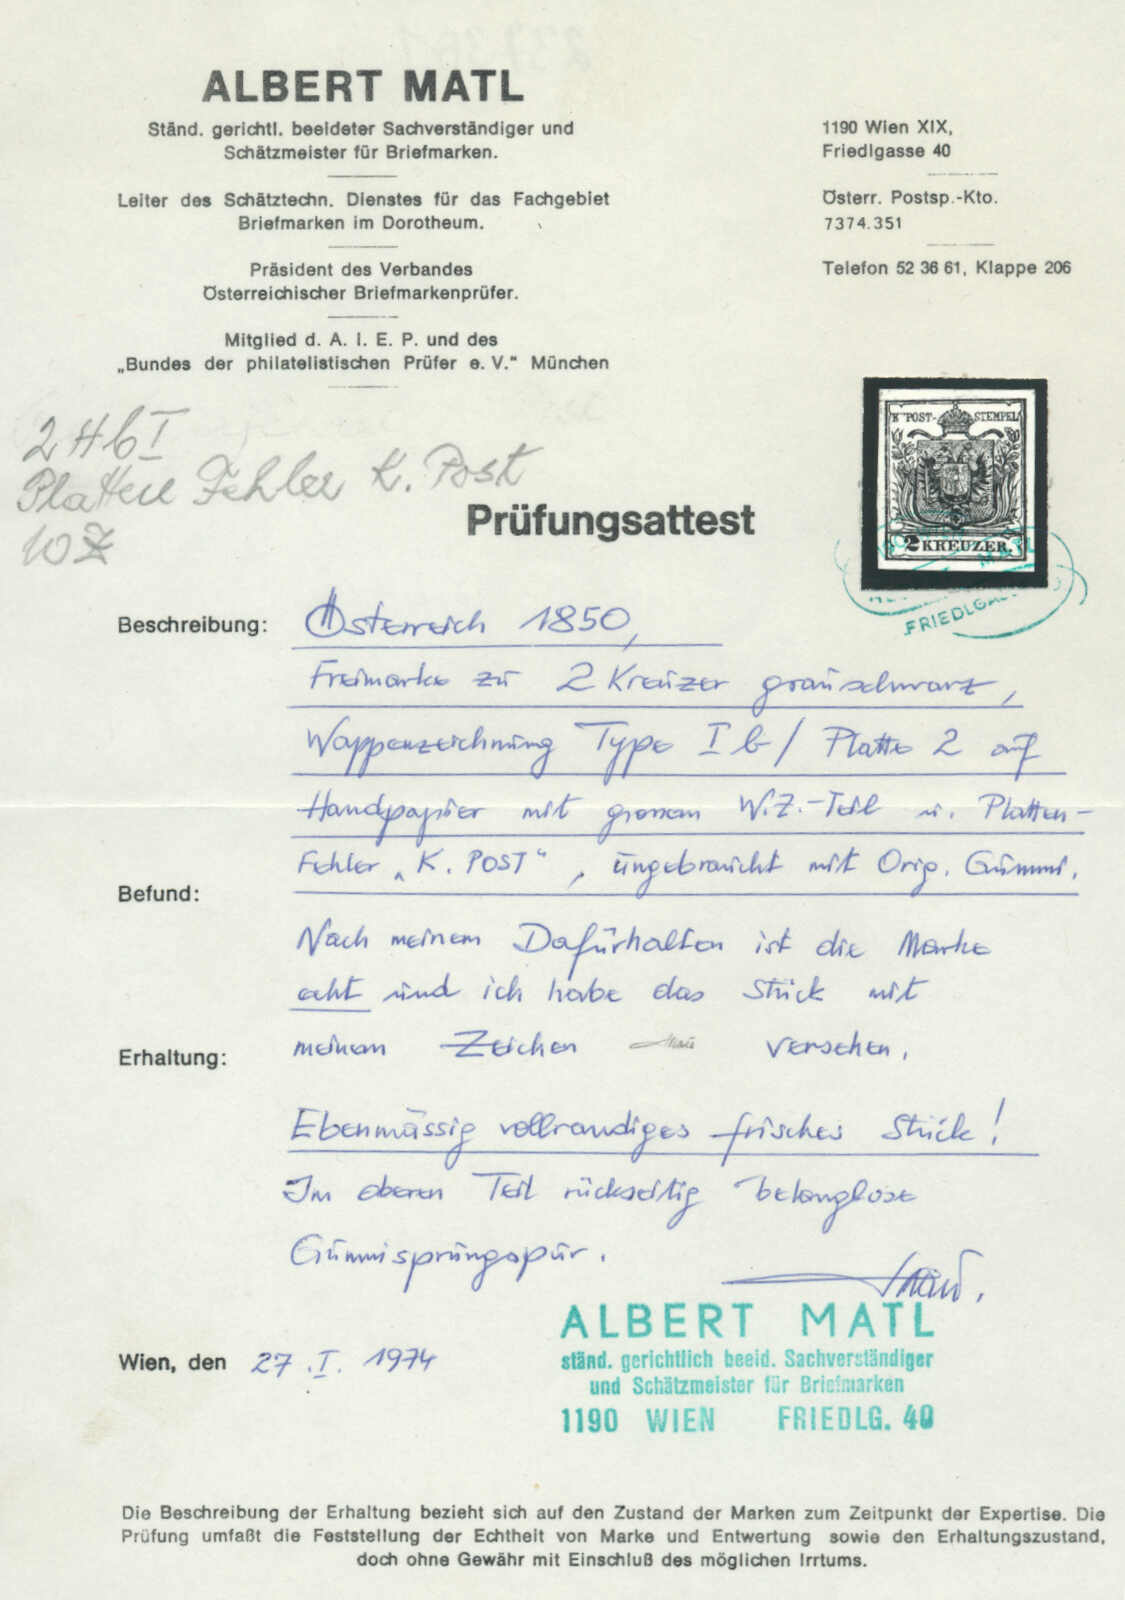 ALBERT MATL
Ständ. gerichtl. beeideter Sachverständiger und
Schätzmeister für Briefmarken.
Leiter des Schätztechn. Dienstes für das Fachgebiet
Briefmarken im Dorotheum.
Präsident des Verbandes
Österreichischer Briefmarkenprüfer.
Mitglied d. A. I. E. P. und des
„Bundes der philatelistischen Prüfer e. V.“ München
1190 Wien XIX,
Friedlgasse 40
Österr. Postsp.-Kto.
7374.351
Telefon 52 36 61, Klappe 206
2 H b I
Platten Fehler K. Post
10
K POST-STEMPEL
2 KREUZER
MATL
FRIEDLGA
Prüfungsattest
Beschreibung: Österreich 1850,
Freimarke zu 2 Kreuzer grauschwarz,
Wappenzeichnung Type I b / Platte 2 auf
Handpapier mit grossem W.Z.-Teil u. Platten-
fehler „K. POST“, ungebraucht mit Orig. Gummi.
Befund:
Nach meinem Dafürhalten ist die Marke
echt und ich habe das Stück mit
Erhaltung: meinem Zeichen versehen.
Ebenmässig vollrandiges frisches Stück!
Im oberen Teil rückseitig belanglose
Gummisprungspur.
ALBERT MATL
ständ. gerichtlich beeid. Sachverständiger
und Schätzmeister für Briefmarken
1190 WIEN FRIEDLG. 40
Wien, den 27. I. 1974
Die Beschreibung der Erhaltung bezieht sich auf den Zustand der Marken zum Zeitpunkt der Expertise. Die
Prüfung umfaßt die Feststellung der Echtheit von Marke und Entwertung sowie den Erhaltungszustand,
doch ohne Gewähr mit Einschluß des möglichen Irrtums.